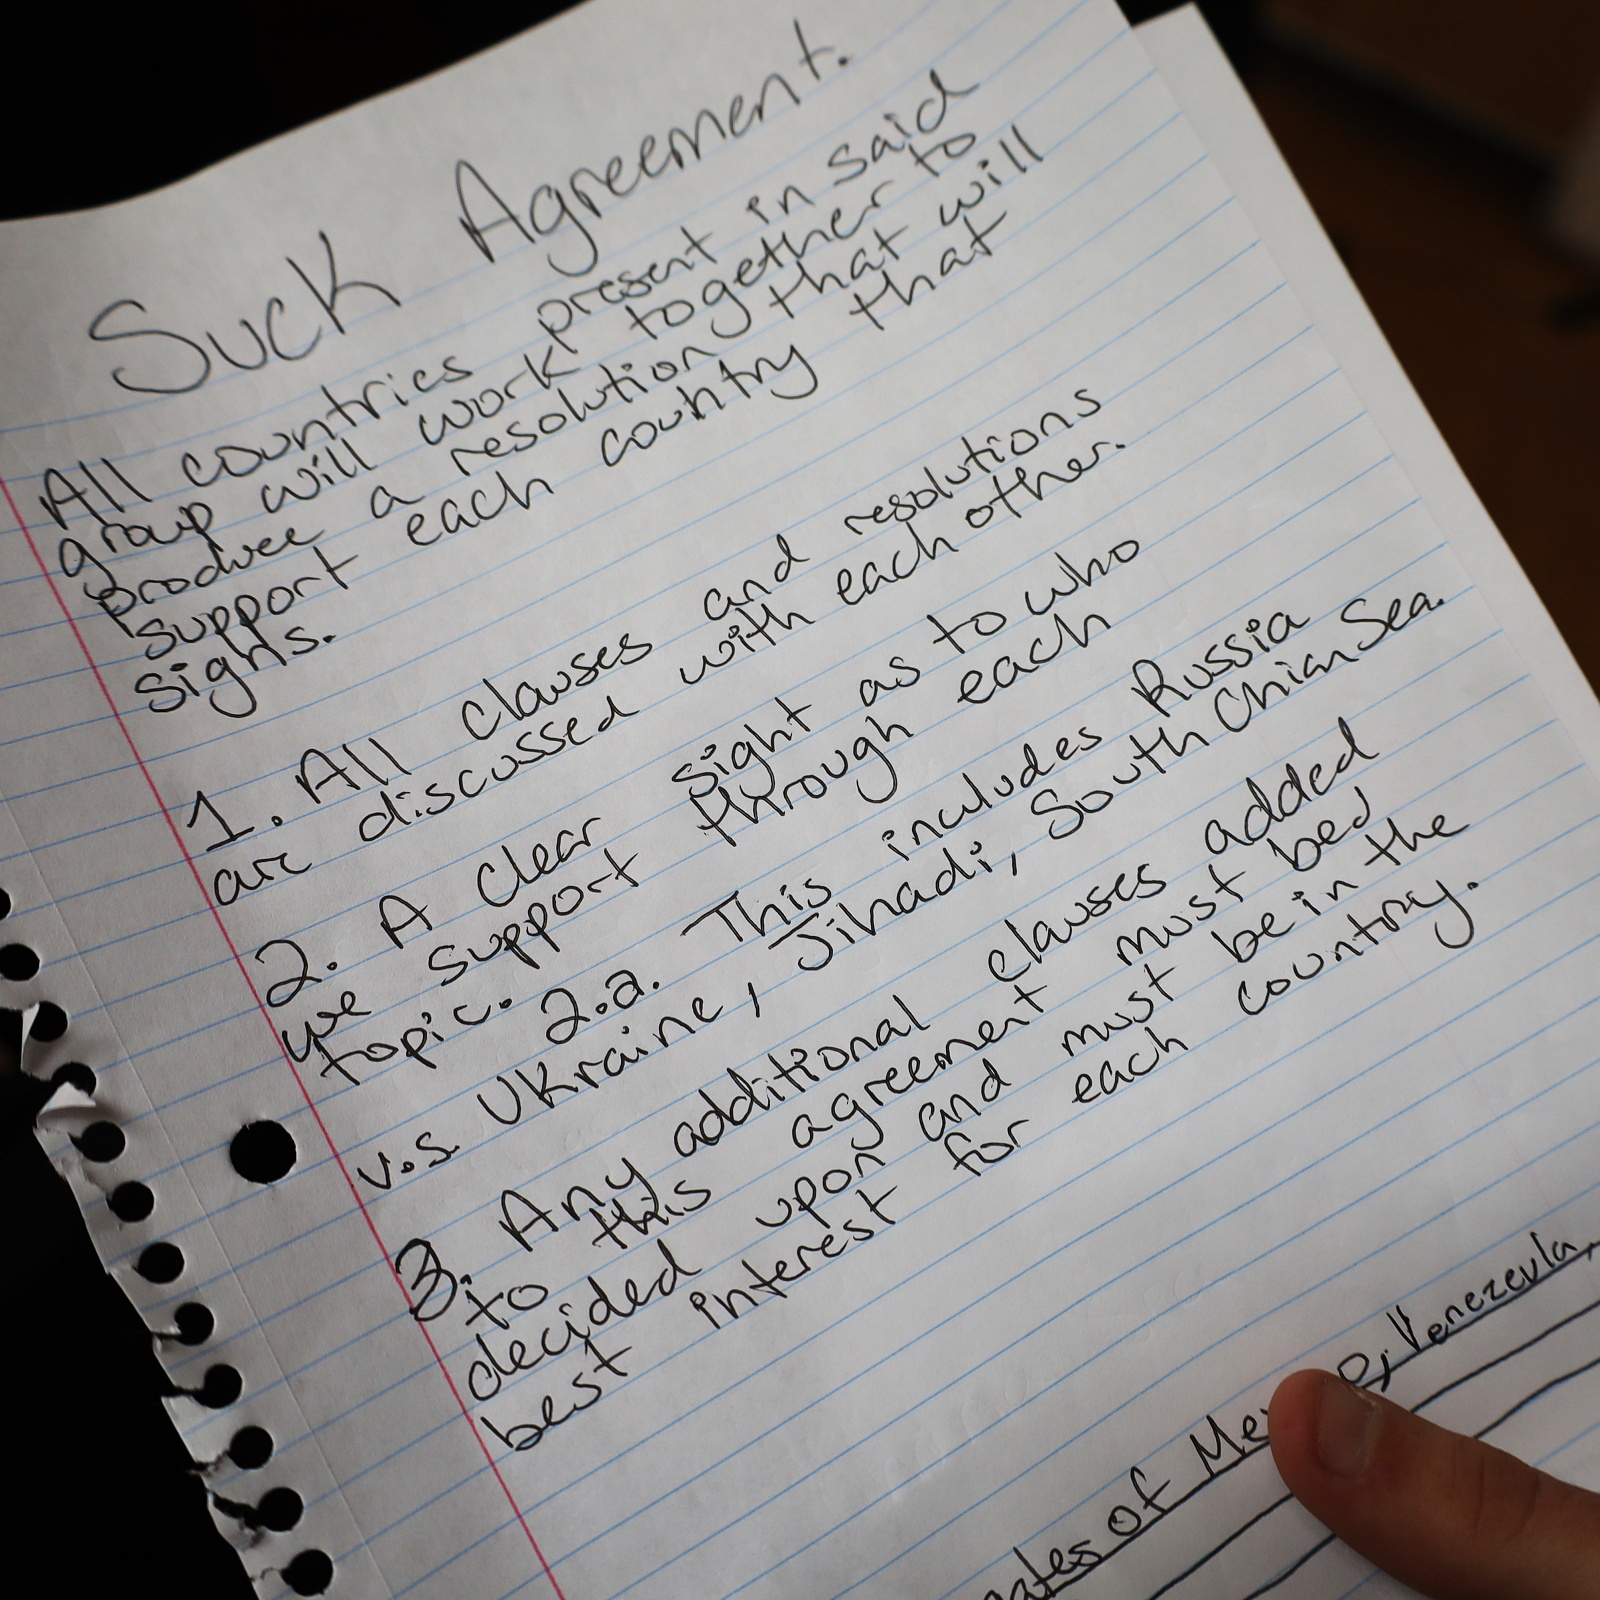 Suck Agreement.
All countries present in said
group will work together to
produce a resolution that will
support each country that
sights.
1. All clauses and resolutions
are discussed with each other.
2. A clear sight as to who
we support through each
topic. 2.a. This includes Russia
v.s. Ukraine, Jihadi, South Chian Sea.
3. Any additional clauses added
to this agreement must bed
decided upon and must be in the
best interest for each country.
of Venezeula,